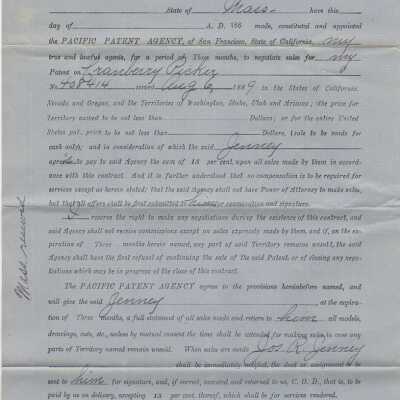 State of Mass. have this
day of A. D. 188 made, constituted and appointed
the PACIFIC PATENT AGENCY, of San Francisco, State of California, my
true and lawful agents, for a period of Three months, to negotiate sales for my
Patent on Cranberry Picker
No 408414 Aug 6, 1889 in the States of California,
Nevada and Oregon, and the Territories of Washington, Idaho, Utah and Arizona; the price for
Territory named to be not less than Dollars; or for the entire United
States pat. price to be not less than Dollars, (sale to be made for
cash only); and in consideration of which the said Jenney
agrees to pay to said Agency the sum of 15 per cent. upon all sales made by them in accord-
ance with this contract. And it is further understood that no compensation is to be required for
services except as herein stated; that the said Agency shall not have Power of Attorney to make sales,
but that all offers shall be first submitted to him for examination and signature.
I reserve the right to make any negotiations during the existence of this contract, and
said Agency shall not receive commissions except on sales expressly made by them; and if, on the ex-
piration of Three months herein named, any part of said Territory remains unsold, the said
Agency shall have the first refusal of continuing the sale of the said Patent, or of closing any nego-
tiations which may be in progress at the close of this contract.
The PACIFIC PATENT AGENCY agrees to the provisions hereinbefore named, and
will give the said Jenney at the expira-
tion of Three months, a full statement of all sales made and return to him all models,
drawings, cuts, etc., unless by mutual consent the time shall be extended for making sales in case any
parts of Territory named remain unsold. When sales are made Jos. A. Jenney
shall be immediately notified, the deed or assignment to be
sent to him for signature, and, if correct, executed and returned to us, C. O. D., that is, to be
paid by us on delivery, excepting 15 per cent. thereof, which shall be for services rendered.